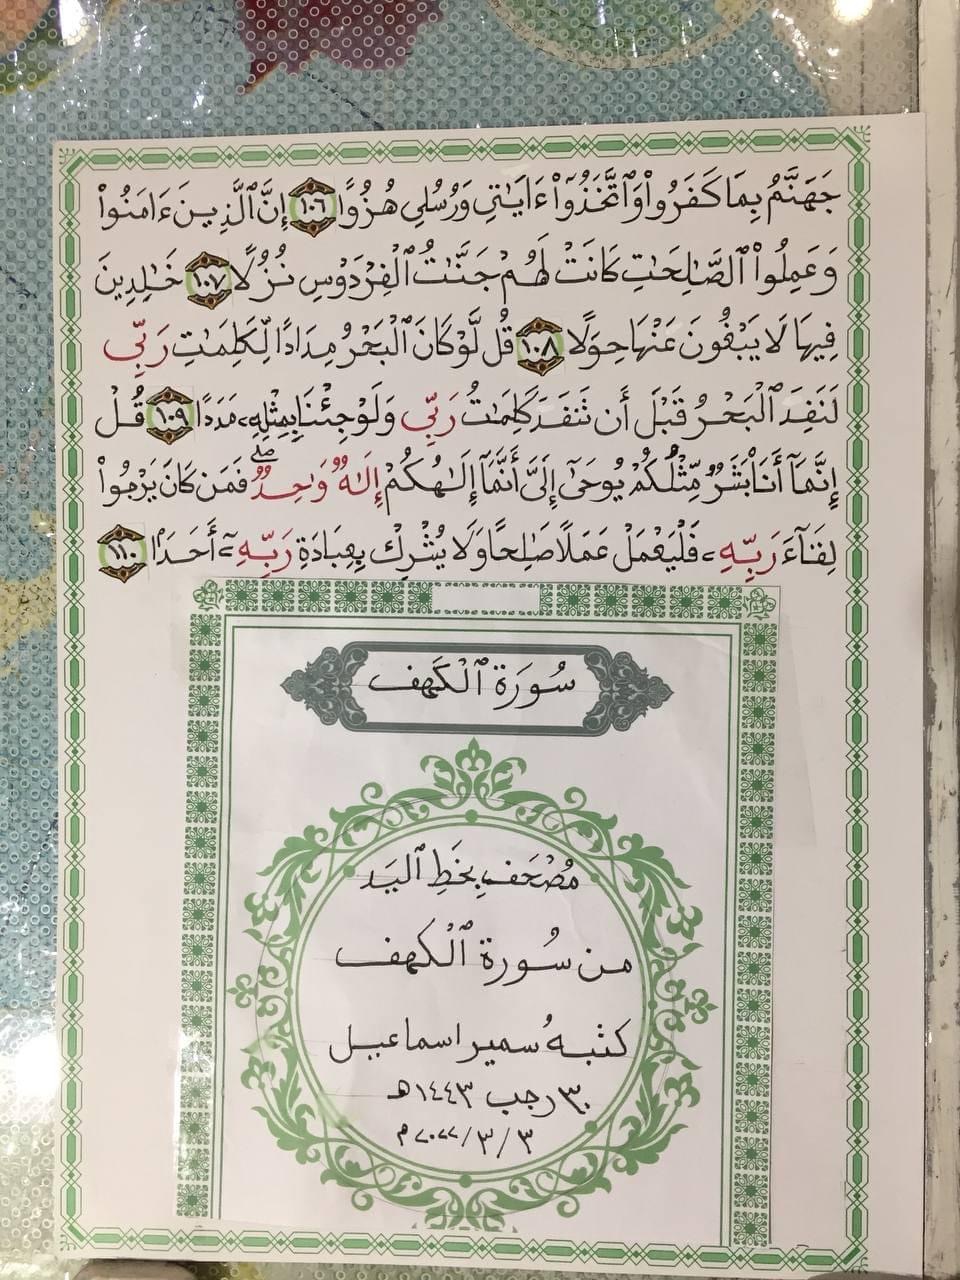 جَهَنَّمُ بِمَا كَفَرُواْ وَٱتَّخَذُوٓاْ ءَايَٰتِي وَرُسُلِي هُزُوًا ١٠٦ إِنَّ ٱلَّذِينَ ءَامَنُواْ
وَعَمِلُواْ ٱلصَّٰلِحَٰتِ كَانَتْ لَهُمْ جَنَّٰتُ ٱلْفِرْدَوْسِ نُزُلًا ١٠٧ خَٰلِدِينَ
فِيهَا لَا يَبْغُونَ عَنْهَا حِوَلًا ١٠٨ قُل لَّوْ كَانَ ٱلْبَحْرُ مِدَادًا لِّكَلِمَٰتِ رَبِّي
لَنَفِدَ ٱلْبَحْرُ قَبْلَ أَن تَنفَدَ كَلِمَٰتُ رَبِّي وَلَوْ جِئْنَا بِمِثْلِهِۦ مَدَدًا ١٠٩ قُلْ
إِنَّمَآ أَنَا۠ بَشَرٌ مِّثْلُكُمْ يُوحَىٰٓ إِلَىَّ أَنَّمَآ إِلَٰهُكُمْ إِلَٰهٌ وَٰحِدٌ ۖ فَمَن كَانَ يَرْجُواْ
لِقَآءَ رَبِّهِۦ فَلْيَعْمَلْ عَمَلًا صَٰلِحًا وَلَا يُشْرِكْ بِعِبَادَةِ رَبِّهِۦٓ أَحَدًا ١١٠
سُورَة ٱلْكَهف
مُصْحَف بِخَطِ ٱليَد
من سُورة ٱلْكهف
كتبهُ سمير اسماعيل
٣٠ رجب ١٤٤٣هـ
٣/٣/٢٠٢٢م